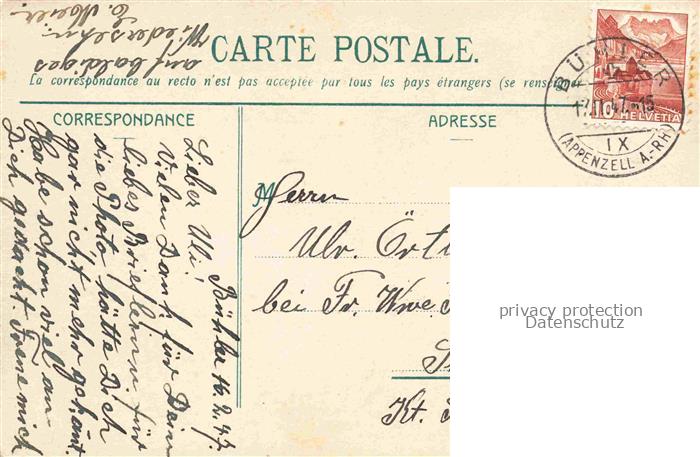 CARTE POSTALE.
La correspondance au recto n'est pas acceptée par tous les pays étrangers (se renseigner
CORRESPONDANCE
ADRESSE
BÜHLER
17.II.47.-15
IX
(APPENZELL A.-RH.)
10 HELVETIA
Herrn
Ulr. Örti
bei Fr. Wwe.
Kt.
Bühler 16.2.47.
Lieber Uli!
Vielen Dank für Dein
liebes Brieflein u. für
die Photo hätte Dich
gar nicht mehr gekannt.
Habe schon viel an
Dich gedacht. Freue mich
auf baldiges
Wiedersehn.
privacy protection
Datenschutz